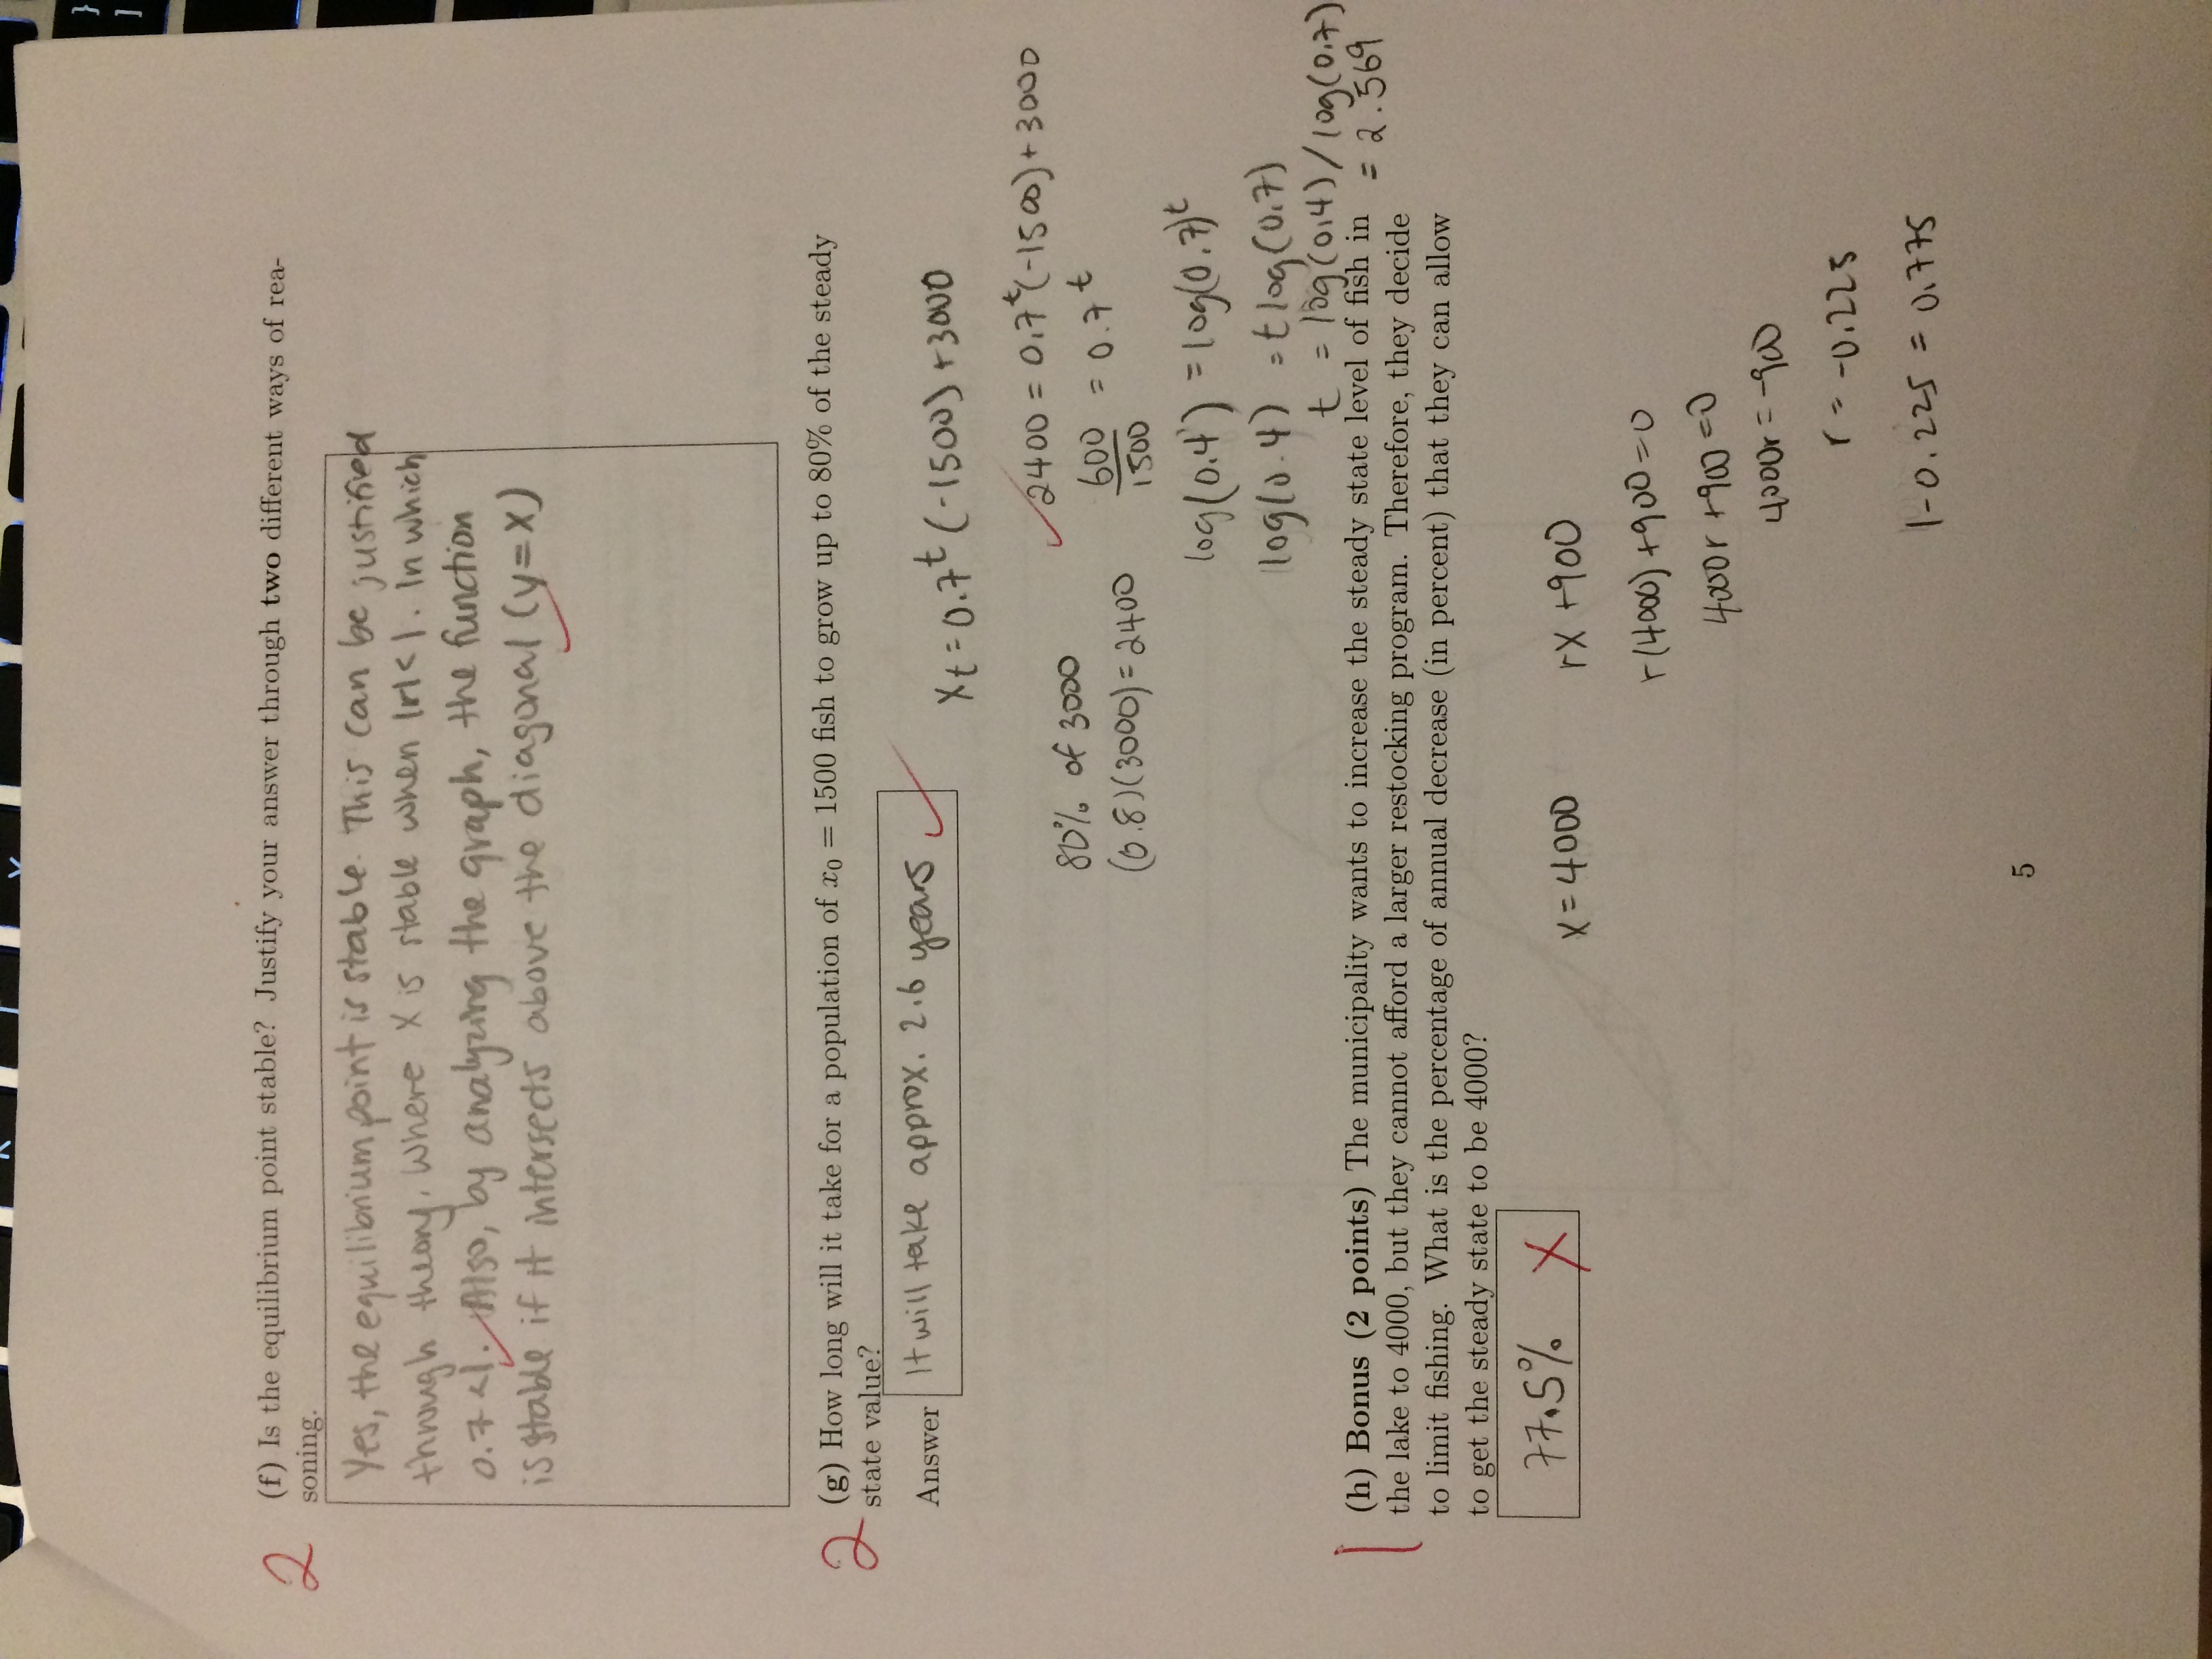 2
(f) Is the equilibrium point stable? Justify your answer through two different ways of rea-
soning.
Yes, the equilibrium point is stable. This can be justified
through theory, where x is stable when |r|<1. In which
0.7<1. Also, by analyzing the graph, the function
is stable if it intersects above the diagonal (y=x)
2
(g) How long will it take for a population of x₀ = 1500 fish to grow up to 80% of the steady
state value?
Answer It will take approx. 2.6 years
xt = 0.7^t (-1500) + 3000
80% of 3000
(0.8)(3000) = 2400
2400 = 0.7^t (-1500) + 3000
600/1500 = 0.7^t
log(0.4) = log(0.7)^t
log(0.4) = t log(0.7)
t = log(0.4) / log(0.7)
= 2.569
1
(h) Bonus (2 points) The municipality wants to increase the steady state level of fish in
the lake to 4000, but they cannot afford a larger restocking program. Therefore, they decide
to limit fishing. What is the percentage of annual decrease (in percent) that they can allow
to get the steady state to be 4000?
77.5% X
x = 4000 rx + 900
r(4000) + 900 = 0
4000r + 900 = 0
4000r = -900
r = -0.225
1 - 0.225 = 0.775
5